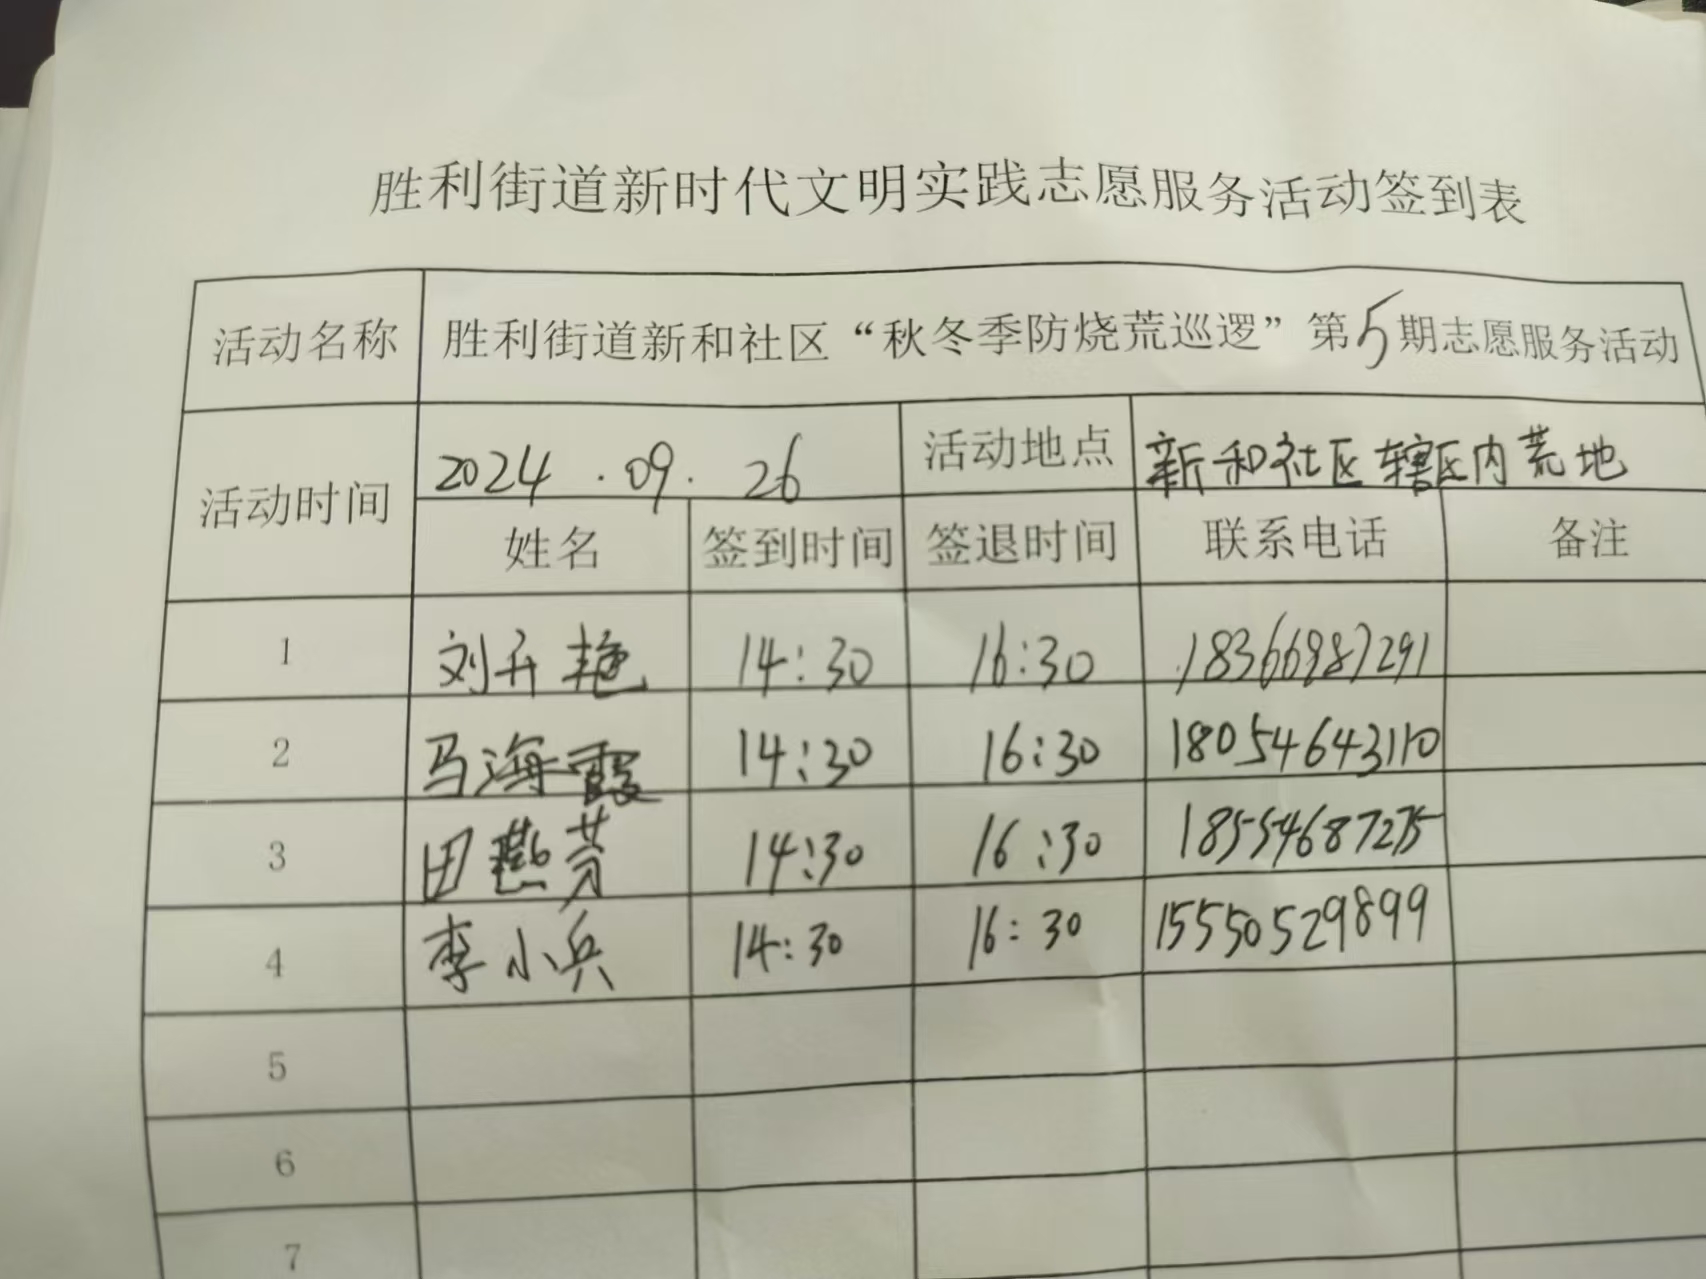 胜利街道新时代文明实践志愿服务活动签到表
活动名称 胜利街道新和社区“秋冬季防烧荒巡逻”第5期志愿服务活动
活动时间 2024.09.26 活动地点 新和社区辖区内荒地
姓名 签到时间 签退时间 联系电话 备注
1 刘开艳 14:30 16:30 18366987291
2 马海霞 14:30 16:30 18054643110
3 田 芳 14:30 16:30 18554687275
4 李小兵 14:30 16:30 15550529899
5
6
7